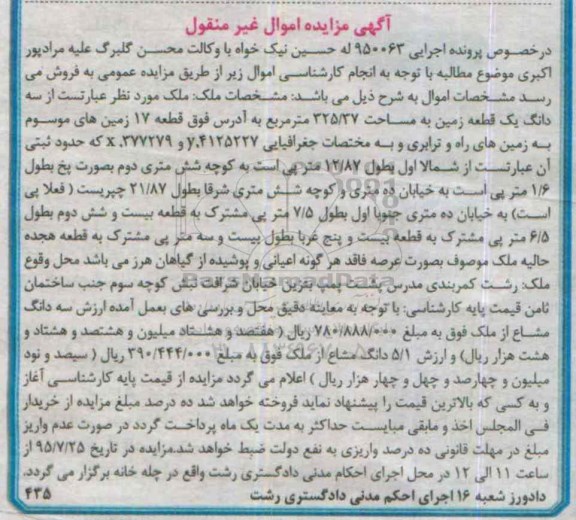 آگهی مزایده اموال غیر منقول
درخصوص پرونده اجرایی ۹۵۰۰۶۳ له حسین نیک خواه با وکالت محسن گلبرگ علیه مرادپور
اکبری موضوع مطالبه با توجه به انجام کارشناسی اموال زیر از طریق مزایده عمومی به فروش می
رسد مشخصات اموال به شرح ذیل می باشد: مشخصات ملک: ملک مورد نظر عبارتست از سه
دانگ یک قطعه زمین به مساحت ۳۲۵/۳۷ مترمربع به آدرس فوق قطعه ۱۷ زمین های موسوم
به زمین های راه و ترابری و به مختصات جغرافیایی y.۴۱۲۵۲۲۷ و x.۳۷۷۲۷۹ که حدود ثبتی
آن عبارتست از شمالا اول بطول ۱۲/۸۷ متر پی است به کوچه شش متری دوم بصورت پخ بطول
۱/۶ متر پی است به خیابان ده متری و کوچه شش متری شرقا بطول ۲۱/۸۷ چپریست ( فعلا پی
است) به خیابان ده متری جنوبا اول بطول ۷/۵ متر پی مشترک به قطعه بیست و شش دوم بطول
۶/۵ متر پی مشترک به قطعه بیست و پنج غربا بطول بیست و سه متر پی مشترک به قطعه هجده
حالیه ملک موصوف بصورت عرصه فاقد هر گونه اعیانی و پوشیده از گیاهان هرز می باشد محل وقوع
ملک: رشت کمربندی مدرس پشت پمپ بنزین خیابان شرافت نبش کوچه سوم جنب ساختمان
ثامن قیمت پایه کارشناسی: با توجه به معاینه دقیق محل و بررسی های بعمل آمده ارزش سه دانگ
مشاع از ملک فوق به مبلغ ۷۸۰/۸۸۸/۰۰۰ ریال ( هفتصد و هشتاد میلیون و هشتصد و هشتاد و
هشت هزار ریال) و ارزش ۵/۱ دانگ مشاع از ملک فوق به مبلغ ۳۹۰/۴۴۴/۰۰۰ ریال ( سیصد و نود
میلیون و چهارصد و چهل و چهار هزار ریال ) اعلام می گردد مزایده از قیمت پایه کارشناسی آغاز
و به کسی که بالاترین قیمت را پیشنهاد نماید فروخته خواهد شد ده درصد مبلغ مزایده از خریدار
فی المجلس اخذ و مابقی مبایست حداکثر به مدت یک ماه پرداخت گردد در صورت عدم واریز
مبلغ در مهلت قانونی ده درصد واریزی به نفع دولت ضبط خواهد شد.مزایده در تاریخ ۹۵/۷/۲۵ از
ساعت ۱۱ الی ۱۲ در محل اجرای احکام مدنی دادگستری رشت واقع در چله خانه برگزار می گردد.
دادورز شعبه ۱۶ اجرای احکم مدنی دادگستری رشت ۴۳۵